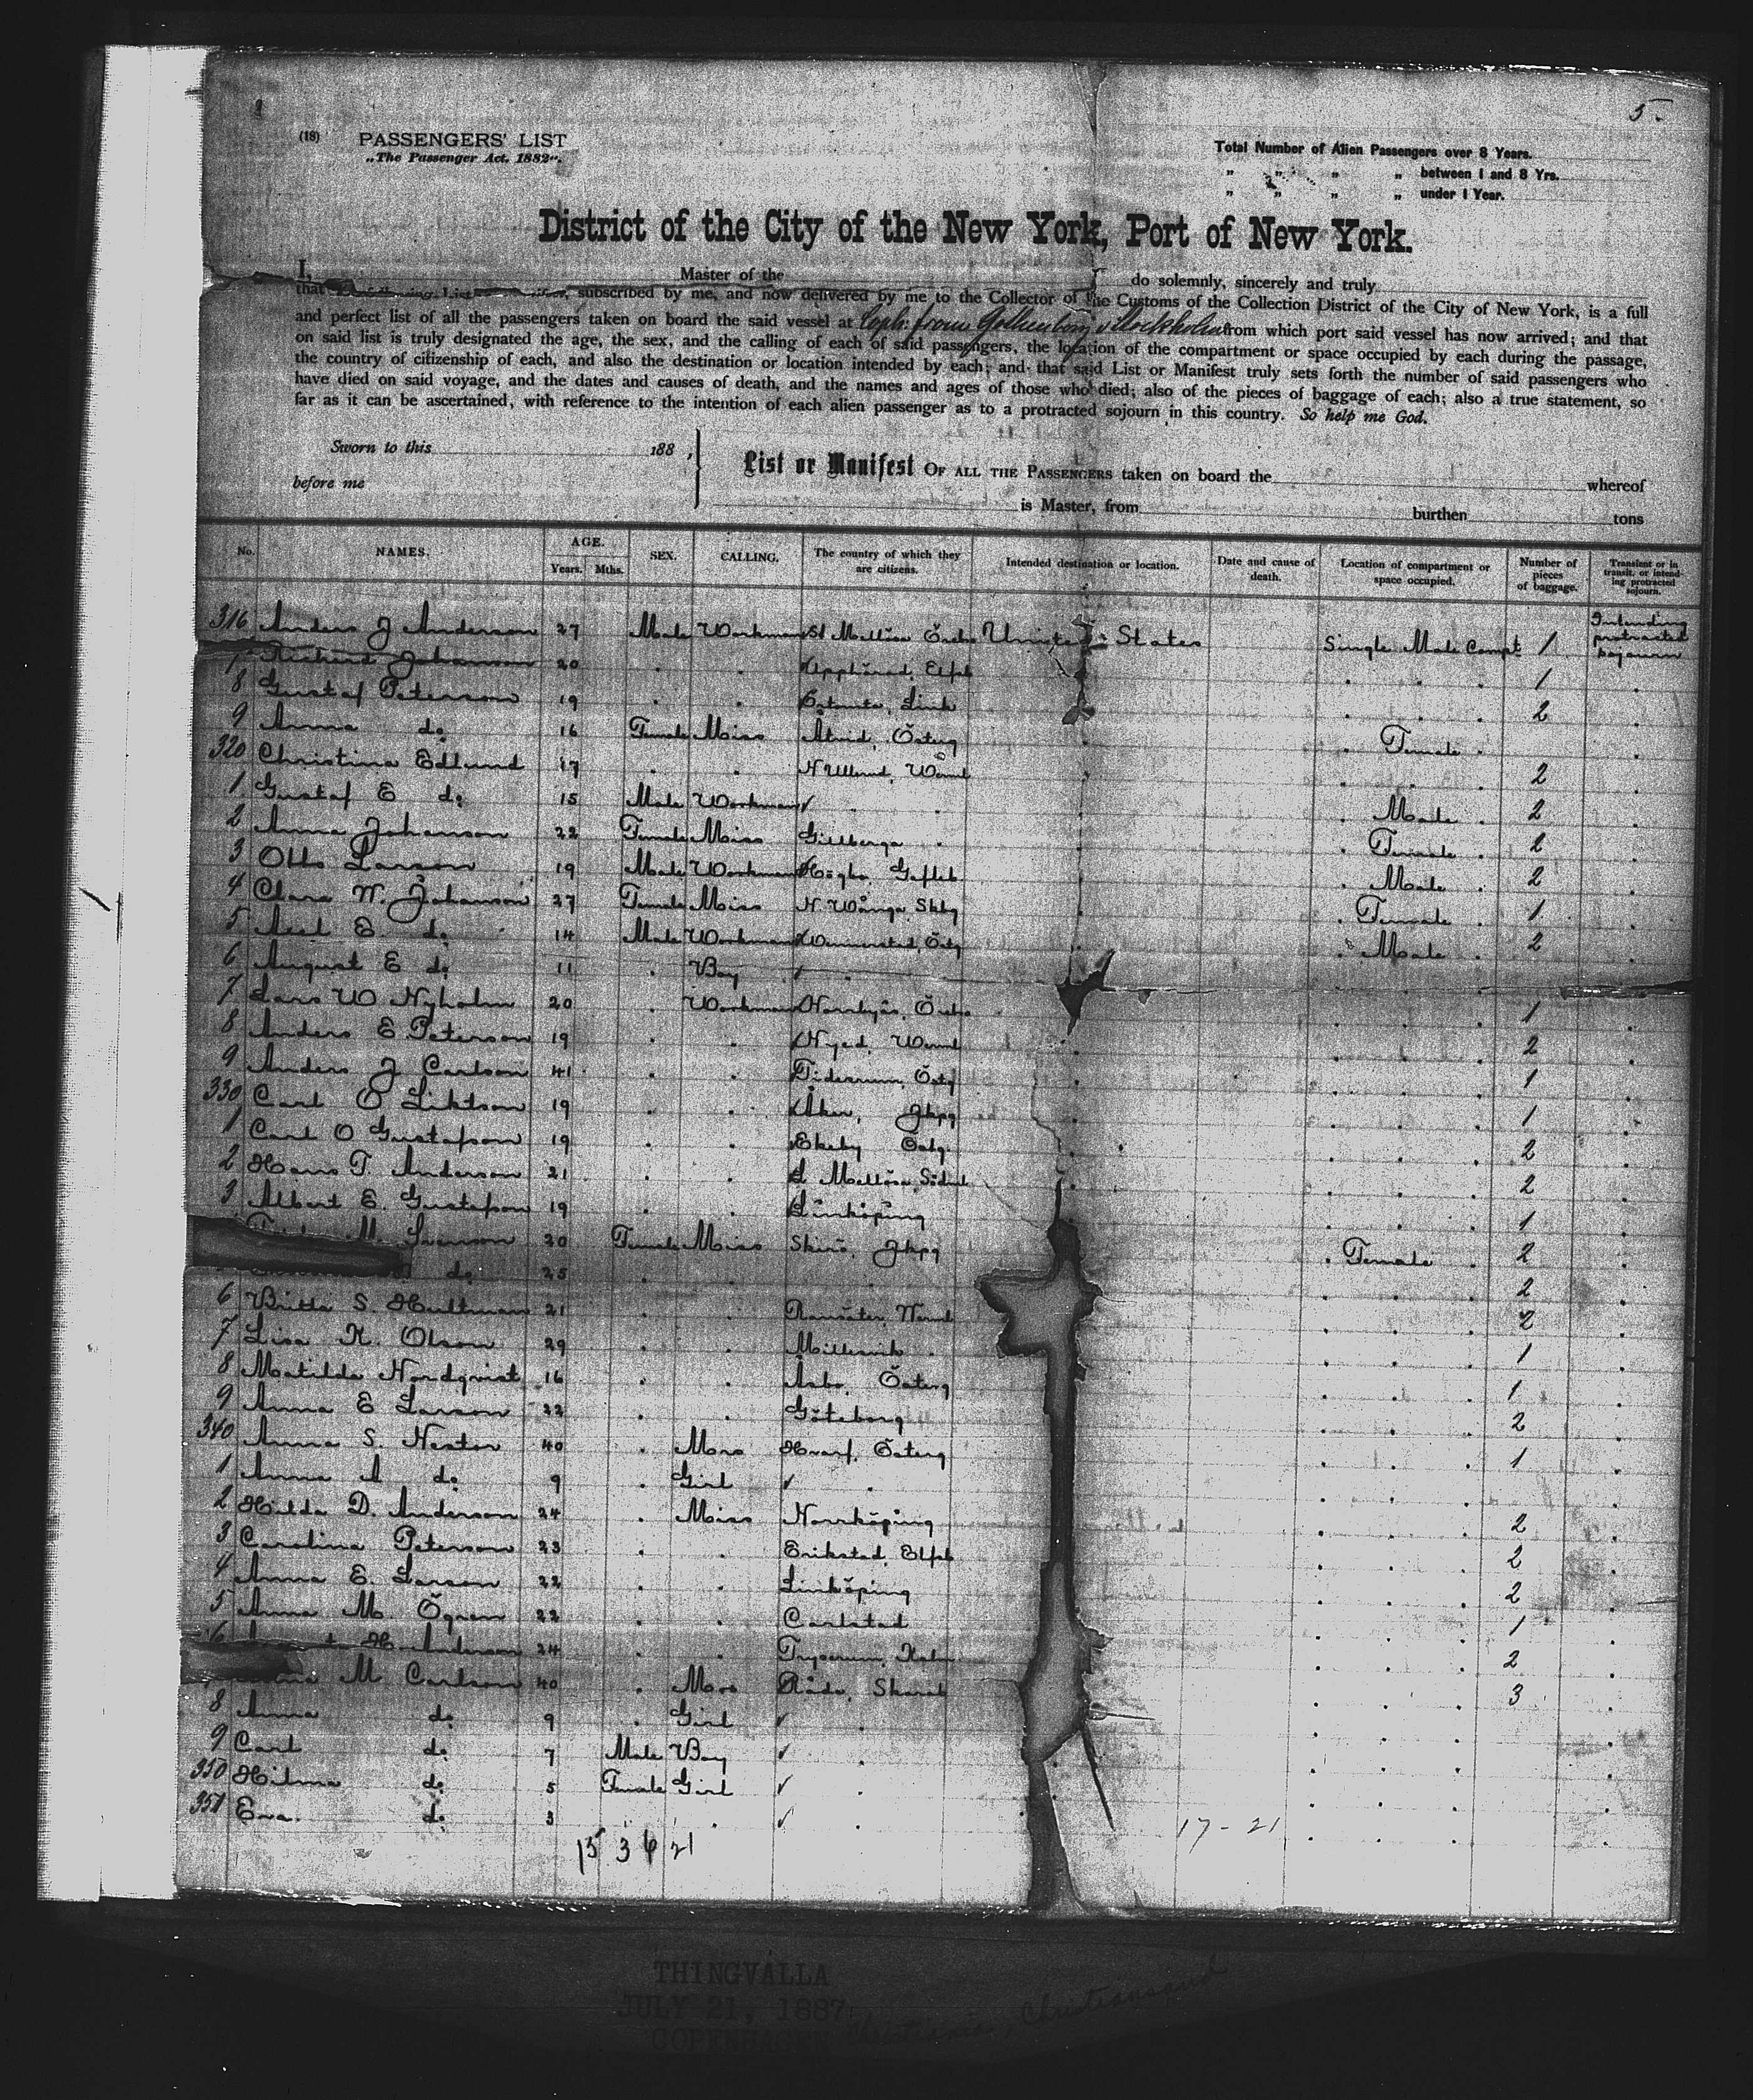 5.
(18) PASSENGERS' LIST
„The Passenger Act. 1882".
Total Number of Alien Passengers over 8 Years.
" " " „ between 1 and 8 Yrs.
" " " „ under 1 Year.
District of the City of the New York, Port of New York.
I, Master of the do solemnly, sincerely and truly
that subscribed by me, and now delivered by me to the Collector of the Customs of the Collection District of the City of New York, is a full
and perfect list of all the passengers taken on board the said vessel at Coph: from Gothenborg & Stockholm from which port said vessel has now arrived; and that
on said list is truly designated the age, the sex, and the calling of each of said passengers, the location of the compartment or space occupied by each during the passage,
the country of citizenship of each, and also the destination or location intended by each; and that said List or Manifest truly sets forth the number of said passengers who
have died on said voyage, and the dates and causes of death, and the names and ages of those who died; also of the pieces of baggage of each; also a true statement, so
far as it can be ascertained, with reference to the intention of each alien passenger as to a protracted sojourn in this country. So help me God.
Sworn to this 188 ,
before me
List or Manifest OF ALL THE PASSENGERS taken on board the whereof
is Master, from burthen tons
No. NAMES. AGE. Years. Mths. SEX. CALLING. The country of which they are citizens. Intended destination or location. Date and cause of death. Location of compartment or space occupied. Number of pieces of baggage. Transient or in transit, or intending protracted sojourn.
316 Anders J Anderson 27 Male Workman St Mellösa Örebro United States Single Male Compt 1 Intending protracted sojourn
7 Richard Johanson 20 . . Upphärad, Elfsb . . . 1 .
8 Gustaf Peterson 19 . . Link . . . 2 .
9 Anna do 16 Female Miss Åtvid, Österg . Female . .
320 Christina Edlund 17 . . N Ullerud, Werml . . . 2 .
1 Gustaf E do 15 Male Workman ✓ . . . Male . 2 .
2 Anna Johanson 22 Female Miss Gillberga . . Female . 2 .
3 Otto Larson 19 Male Workman Högbo, Gefleb. . Male . 2 .
4 Clara W. Johanson 27 Female Miss N. Wånga, Skbg . Female . 1 .
5 Axel E. do 14 Male Workman Östg . Male . 2 .
6 August E do 11 . Boy ✓ . . . .
7 Lars W Nyholm 20 . Workman Norrbyås, Örebro . . . 1 .
8 Anders E Peterson 19 . . Nyed, Werml . . . 2 .
9 Anders J Carlson 41 . . Tidersrum, Östg . . . 1 .
330 Carl O 19 . . Åker, Jkpg . . . 1 .
1 Carl O Gustafson 19 . . Ekeby Östg. . . . 2 .
2 Hans T. Anderson 21 . . L Mellösa, Söderml . . . 2 .
3 Albert E. Gustafson 19 . . Linköping . . . 1 .
M. Svenson 20 Female Miss Skirö, Jkpg . Female . 2 .
do 25 . . . . . . 2 .
6 Britta S. Hultman 21 . . Ransäter, Werml . . . 2 .
7 Lisa K. Olson 29 . . Millesvik . . . . 1 .
8 Matilda Nordqvist 16 . . Asbo, Österg . . . 1 .
9 Anna E Larson 22 . . Göteborg . . . 2 .
340 Anna S. Nestor 40 . Mrs Hvarf, Österg . . . 1 .
1 Anna A do 9 . Girl ✓ . . . . .
2 Hilda D. Anderson 24 . Miss Norrköping . . . 2 .
3 Carolina Peterson 23 . . Erikstad, Elfsb . . . 2 .
4 Anna E. Larson 22 . . Linköping . . . 2 .
5 Anna M. Ögren 22 . . Carlstad . . . 1 .
6 H. Anderson 24 . . Tryserum, Kalm . . . 2 .
M Carlson 40 . Mrs Råda, Skarab . . . 3 .
8 Anna do 9 . Girl ✓ . . . . .
9 Carl do 7 Male Boy ✓ . . . .
350 Hilma do 5 Female Girl ✓ . . . . .
351 Eva. do 3 . . ✓ . . . .
17 - 21
15 3 6 21
THINGVALLA
JULY 21, 1887
COPENHAGEN Christiania, Christiansand